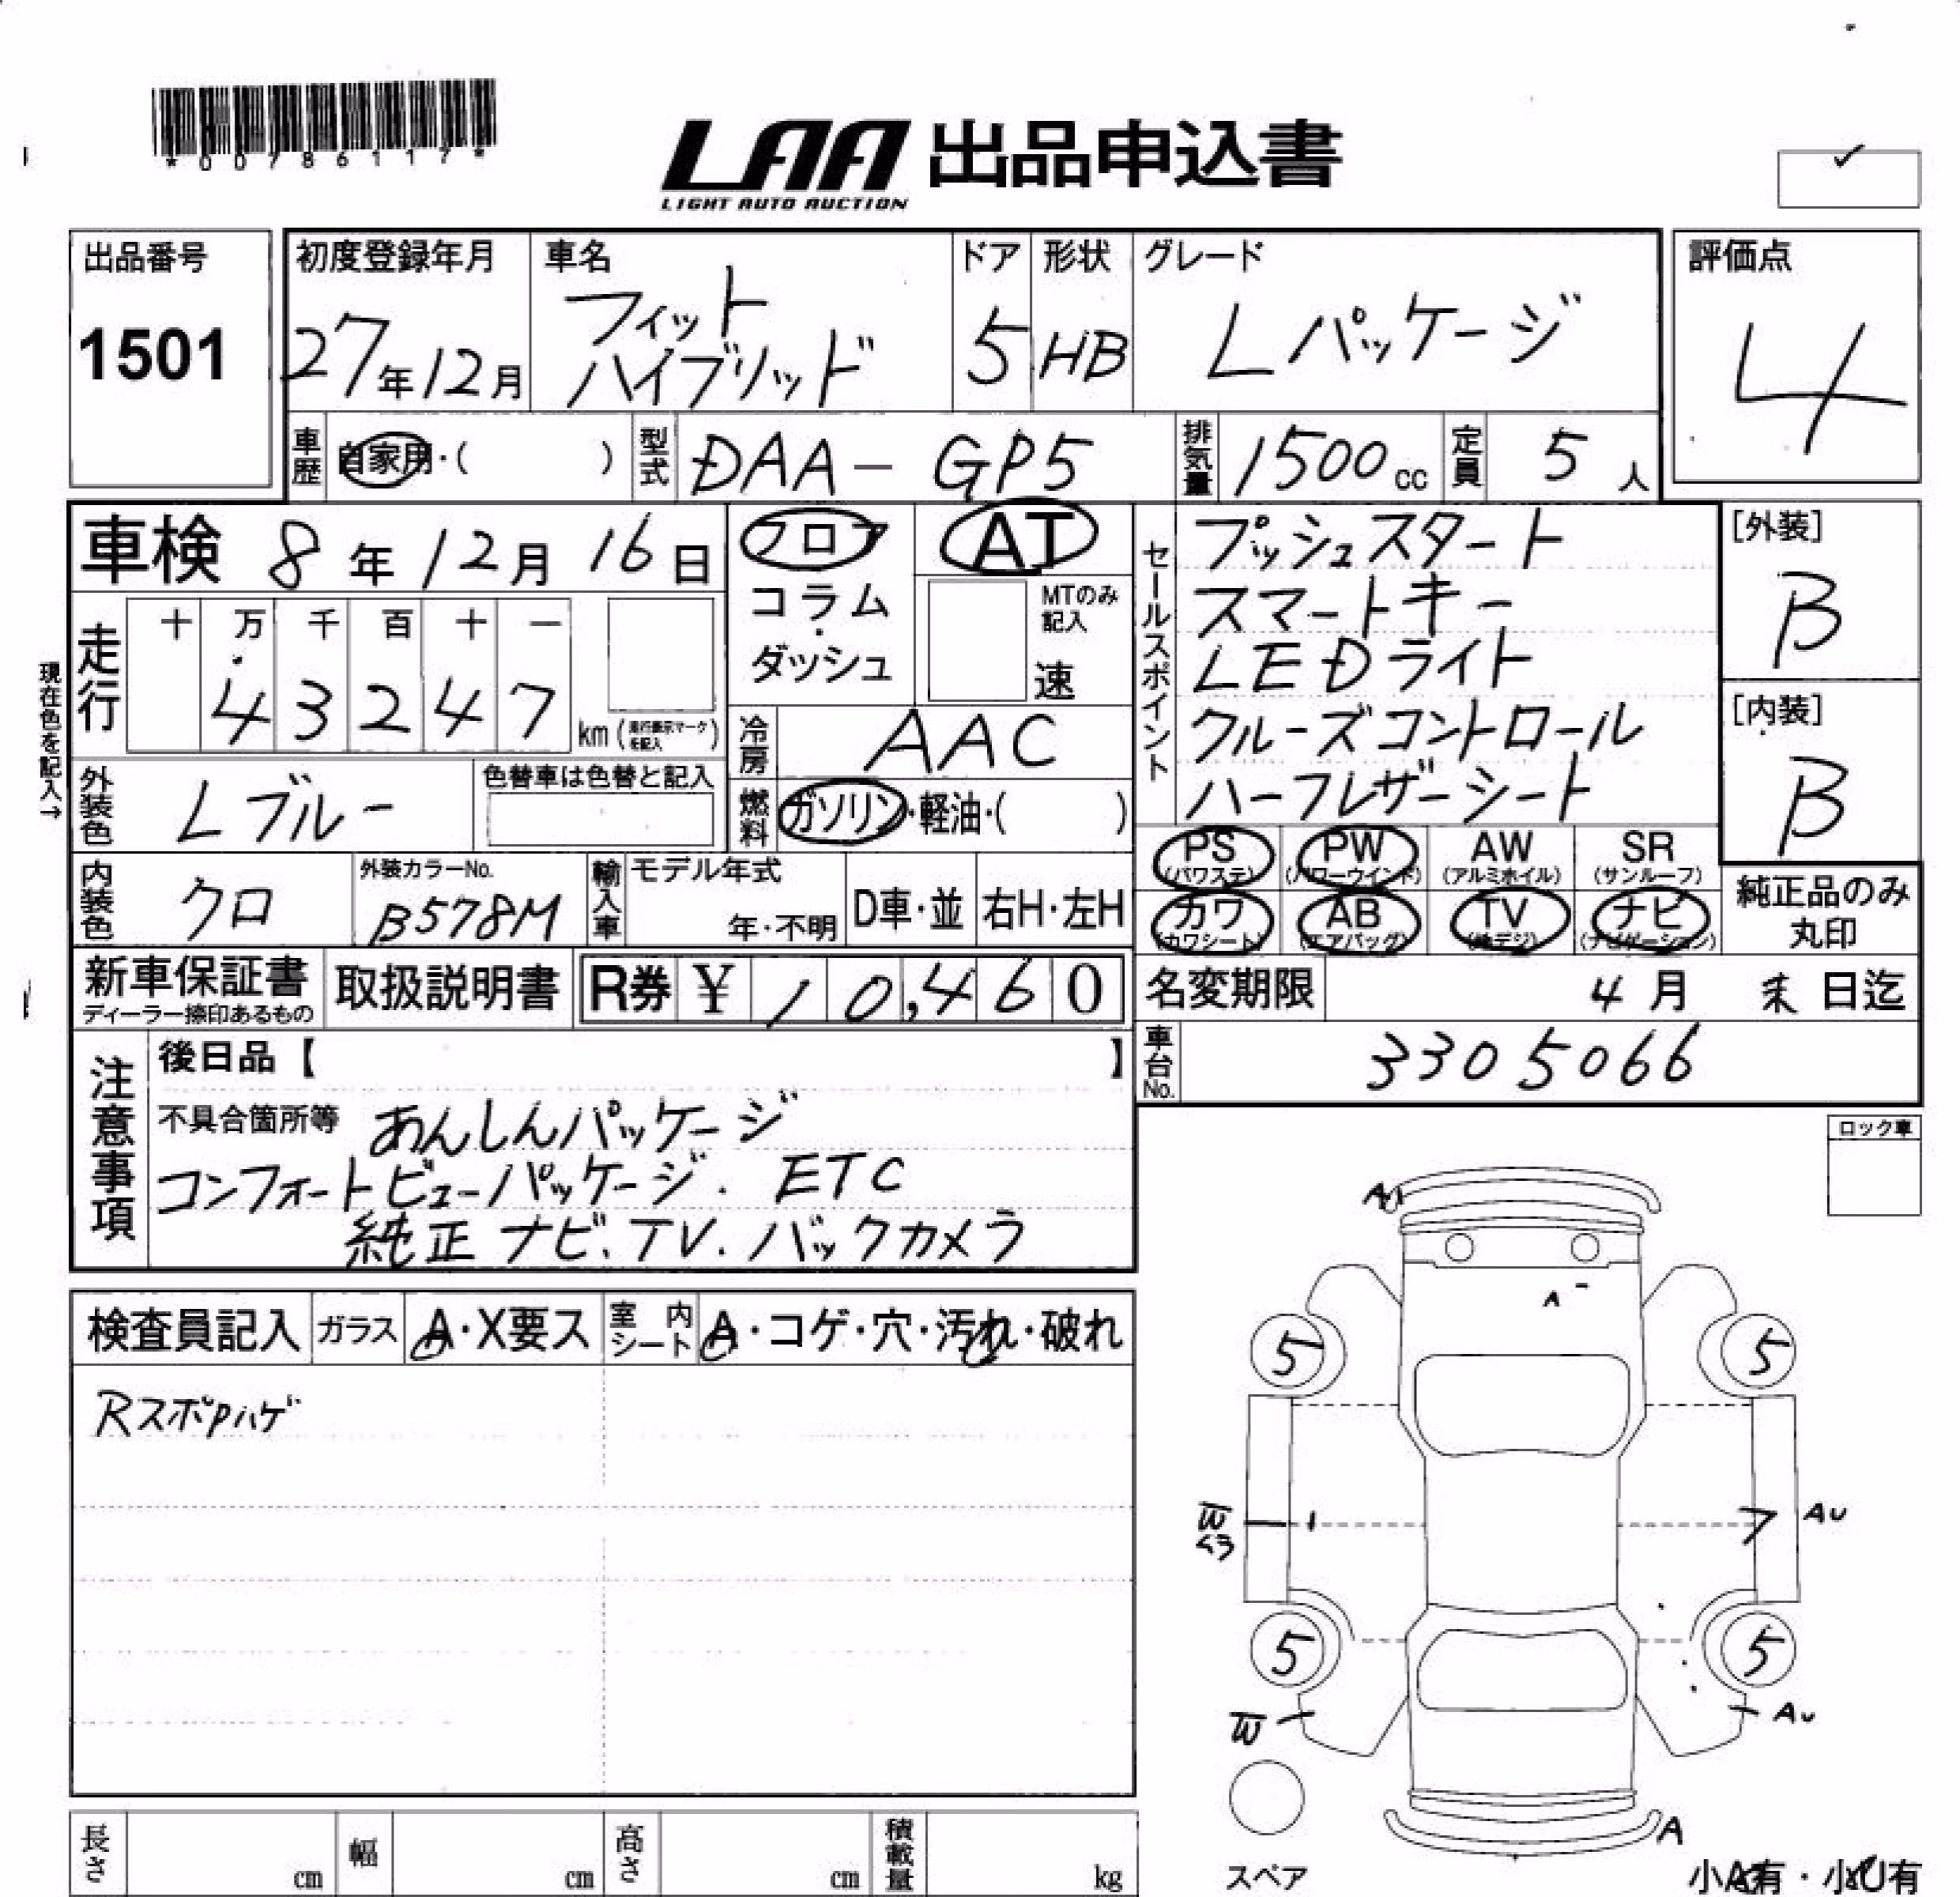 *00786117*
LAA 出品申込書
LIGHT AUTO AUCTION
✓
出品番号
1501
初度登録年月
27年12月
車名
フィット
ハイブリッド
ドア
5
形状
HB
グレード
Lパッケージ
評価点
4
車歴 自家用・( )
型式 DAA-GP5
排気量 1500cc
定員 5人
車検 8年12月16日
フロア
コラム
・
ダッシュ
AT
MTのみ
記入
速
セールスポイント
プッシュスタート
スマートキー
LEDライト
クルーズコントロール
ハーフレザーシート
[外装]
B
[内装]
B
現在色を記入→
走行
十 万 千 百 十 一
4 3 2 4 7
km (走行表示マークを記入)
冷房 AAC
外装色 Lブルー
色替車は色替と記入
燃料 ガソリン・軽油・( )
内装色 クロ
外装カラーNo.
B578M
輸入車
モデル年式
年・不明
D車・並
右H・左H
PS (パワステ)
PW (パワーウインド)
AW (アルミホイル)
SR (サンルーフ)
カワ (カワシート)
AB (エアバッグ)
TV (地デジ)
ナビ (ナビゲーション)
純正品のみ
丸印
新車保証書
ディーラー捺印あるもの
取扱説明書
R券 ¥ 10,460
名変期限 4月 末日迄
車台No. 3305066
注意事項
後日品【 】
不具合箇所等 あんしんパッケージ
コンフォートビューパッケージ. ETC
純正 ナビ.TV.バックカメラ
ロック車
検査員記入
ガラス A・X要ス
室内シート A・コゲ・穴・汚れ・破れ
RスポPハゲ
A
A
5
5
Au
5
5
W
Au
A
スペア
小A有・小U有
長さ cm
幅 cm
高さ cm
積載量 kg